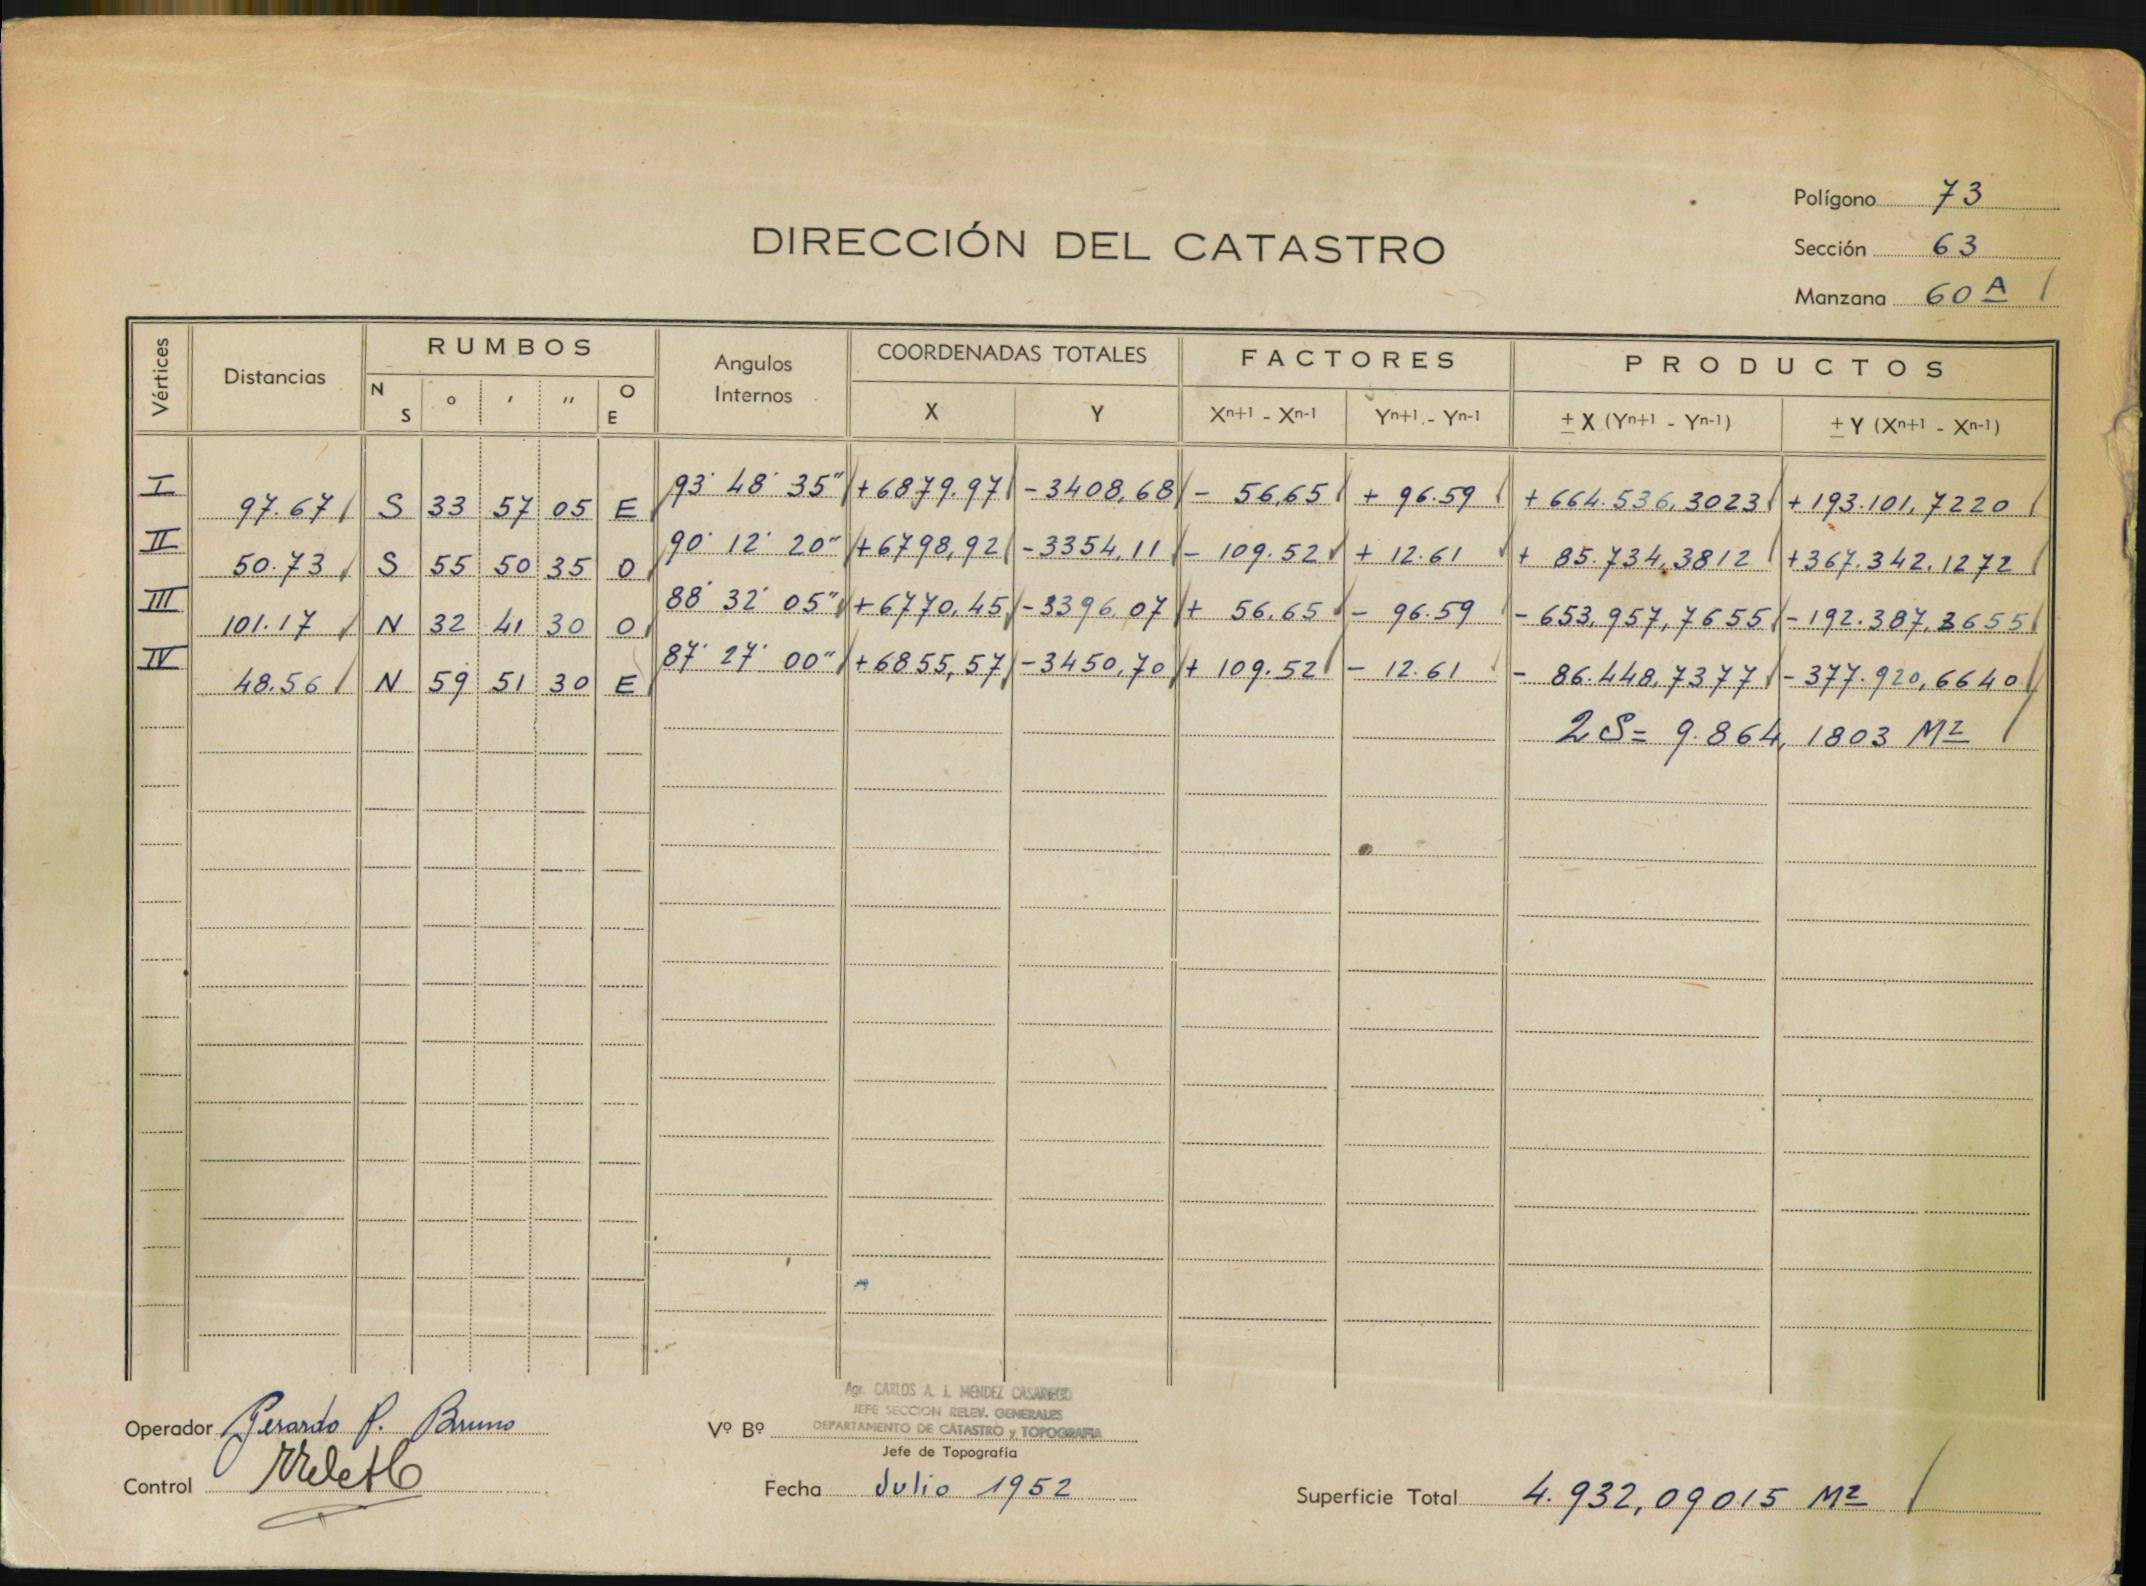 Polígono 73
DIRECCIÓN DEL CATASTRO
Sección 63
Manzana 60 A
Vértices Distancias RUMBOS Angulos Internos COORDENADAS TOTALES FACTORES PRODUCTOS
N S ° ' " O E X Y Xn+1 - Xn-1 Yn+1 - Yn-1 ± X (Yn+1 - Yn-1) ± Y (Xn+1 - Xn-1)
I 97.67 S 33 57 05 E 93° 48' 35" +6879.97 -3408,68 - 56,65 + 96.59 + 664.536,3023 +193.101,7220
II 50.73 S 55 50 35 O 90° 12' 20" +6798,92 -3354,11 - 109.52 + 12.61 + 85.734,3812 +367.342,1272
III 101.17 N 32 41 30 O 88° 32' 05" +6770,45 -3396,07 + 56,65 - 96.59 - 653,957,7655 -192.387,3655
IV 48.56 N 59 51 30 E 87° 27' 00" +6855,57 -3450,70 + 109.52 - 12.61 - 86.448,7377 -377.920,6640
2 S = 9.864,1803 M2
Agr. CARLOS A. J. MENDEZ CASARIEGO
JEFE SECCION RELEV. GENERALES
DEPARTAMENTO DE CATASTRO y TOPOGRAFIA
Operador Gerardo P. Bruno Vº Bº
Jefe de Topografía
Control Fecha Julio 1952 Superficie Total 4.932,09015 M2